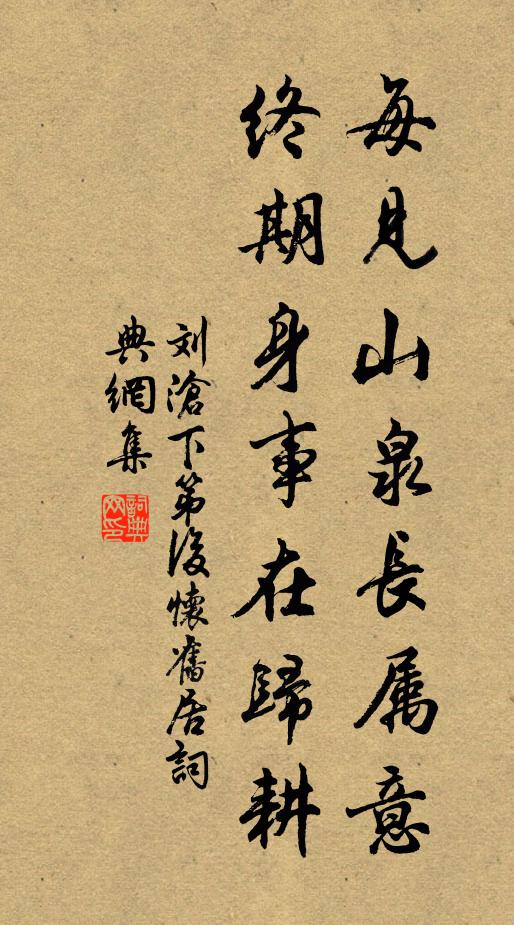 每見山泉長属意
終期身事在歸耕
刘滄下第後懷舊居詞
典網集
詞典网印